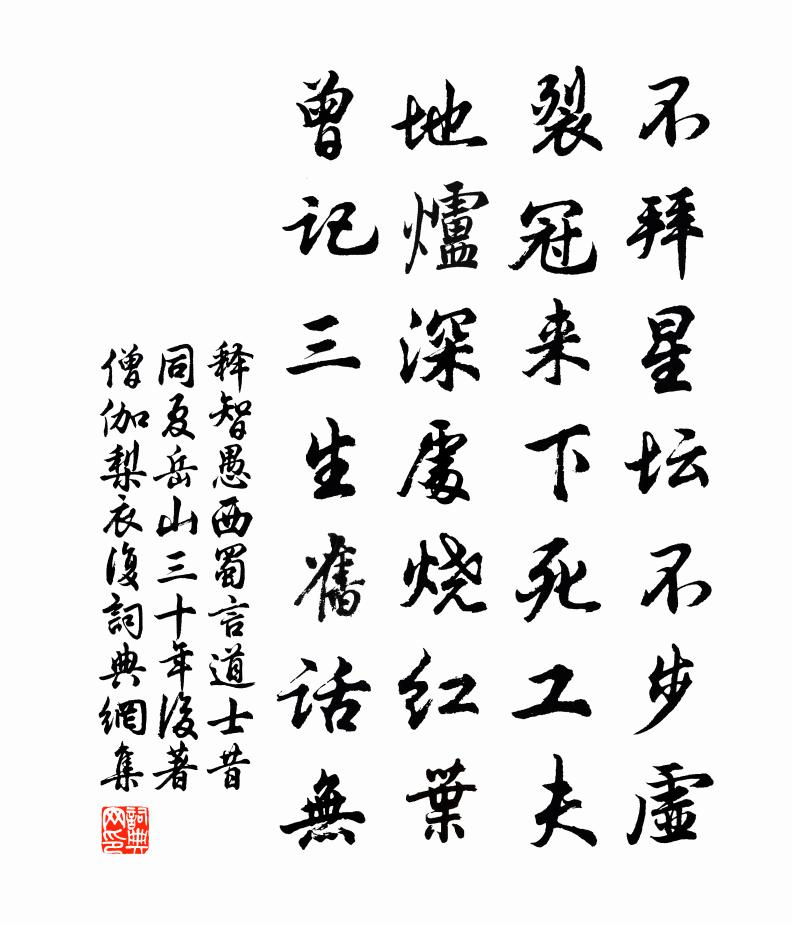 不拜星坛不步虚
裂冠来下死工夫
地爐深處烧红葉
曾记三生舊话無
释智愚西蜀言道士昔
同夏岳山三十年後著
僧伽梨衣復詞典網集
詞典网印